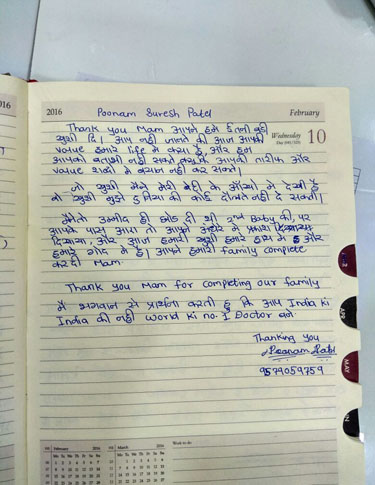 2016
Poonam Suresh Patel
February
Wednesday 10
Thank you Mam आपने हमे इतनी बड़ी
खुशी दि। आप नही जानते की आज आपकी
value हमारे life में क्या है, और हम
आपको बता भी नही सकते बस के आपकी तारीफ और
value शब्दों मे बयान नही कर सकते।
जो खुशी मैने मेरी बेटी के आँखो मे देखी है
वो खुशी मुझे दुनिया की कोई दौलत नही दे सकती।
मैंने तो उम्मीद ही छोड दी थी 2nd Baby की, पर
आपके पास आए तो आपने अंधेरे मे प्रकाश
दिखाया, और आज हमारी खुशी हमारे हाथ मे है और
हमारे गोद मे है। आपने हमारी family complete
कर दी Mam.
Thank you Mam for completing our family
मैं भगवान से प्रार्थना करती हूं कि आप India की
India की नही World की no. 1 Doctor बने
Thanking you
Poonam Patel
9579059759
February 2016
March 2016
Work to do
APR
MAY